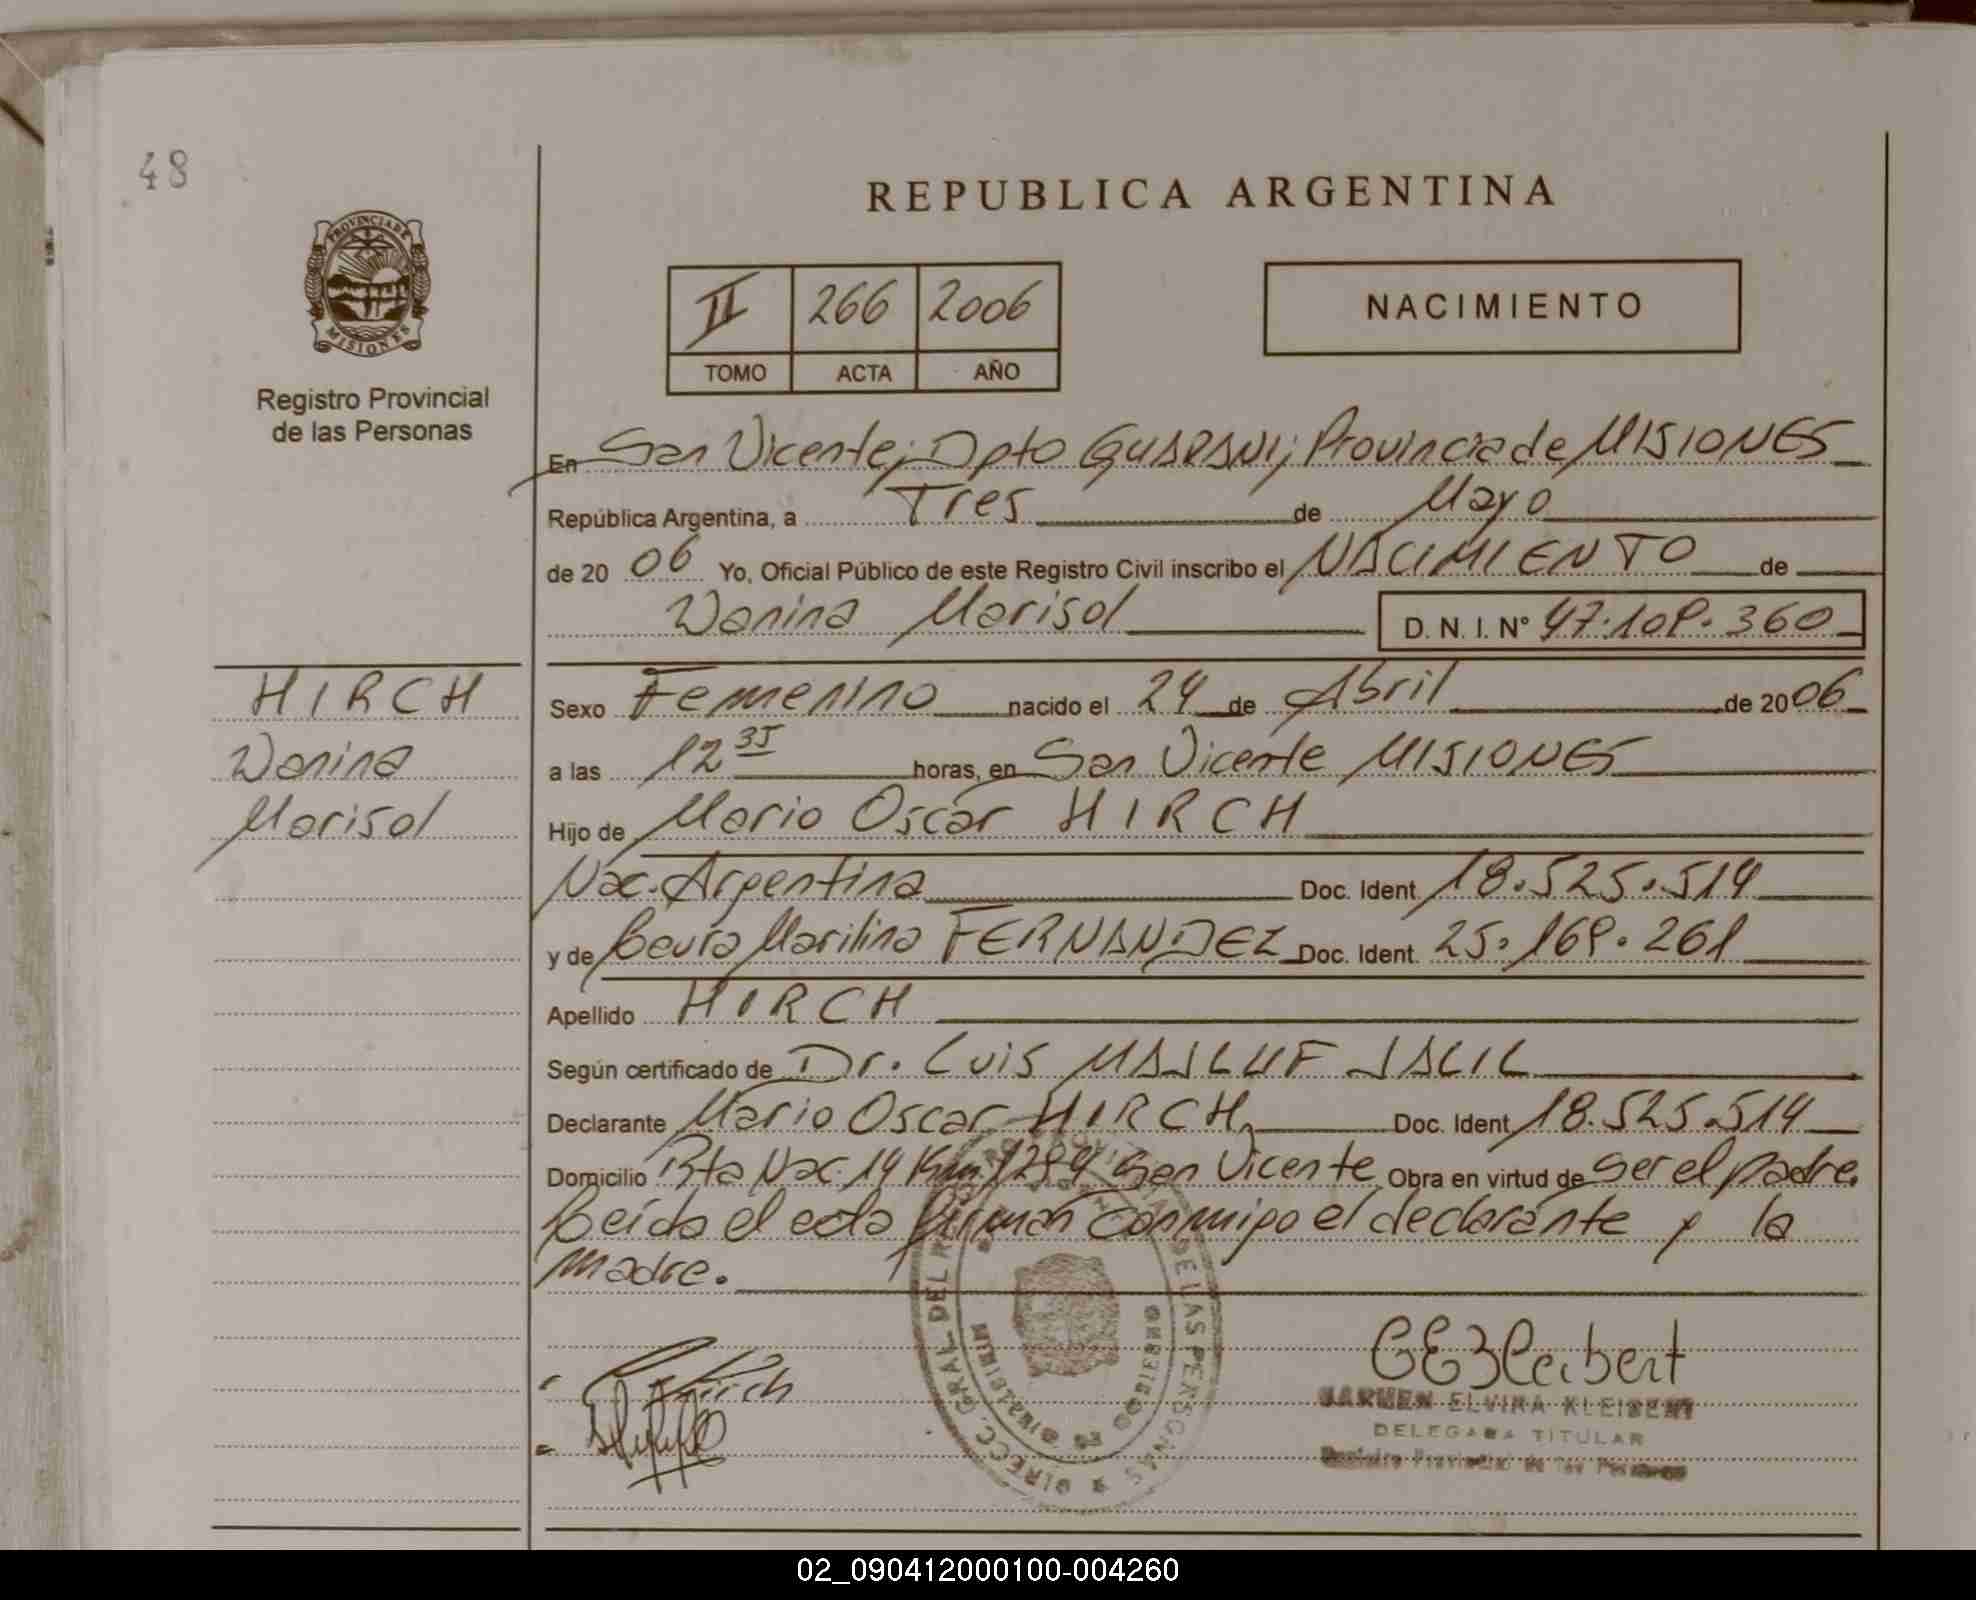 48
PROVINCIA DE
MISIONES
Registro Provincial
de las Personas
REPUBLICA ARGENTINA
II 266 2006
TOMO ACTA AÑO
NACIMIENTO
En San Vicente; Dpto GUARANI; Provincia de MISIONES
República Argentina, a Tres de Mayo
de 20 06 Yo, Oficial Público de este Registro Civil inscribo el NACIMIENTO de
Wanina Marisol D. N. I. Nº 47.109.360
HIRCH
Wanina
Marisol
Sexo Femenino nacido el 24 de Abril de 20 06
a las 12 35 horas, en San Vicente MISIONES
Hijo de Mario Oscar HIRCH
Nac. Argentina Doc. Ident. 18.525.514
y de Leura Marilina FERNANDEZ Doc. Ident. 25.169.261
Apellido HIRCH
Según certificado de Dr. Luis MAJLUF JALIL
Declarante Mario Oscar HIRCH Doc. Ident 18.525.514
Domicilio Rta Nac. 14 Km 1294 San Vicente Obra en virtud de ser el padre.
Leída el acta firman conmigo el declarante y la
madre.
DIRECC. GRAL. DEL DE LAS PERSONAS
MINISTERIO DE GOBIERNO
CEKleibert
CARMEN ELVIRA KLEIBERT
DELEGADA TITULAR
Registro Provincial de las Personas
02_090412000100-004260